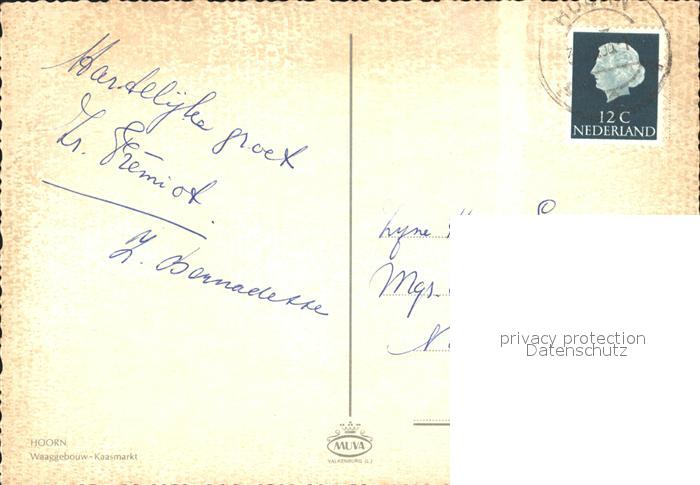 Hartelijke groet
Zr. Frémiot.
Z. Bernadette
12 C
NEDERLAND
HOORN
Mgr.
privacy protection
Datenschutz
HOORN
Waaggebouw - Kaasmarkt
MUVA
VALKENBURG (L.)